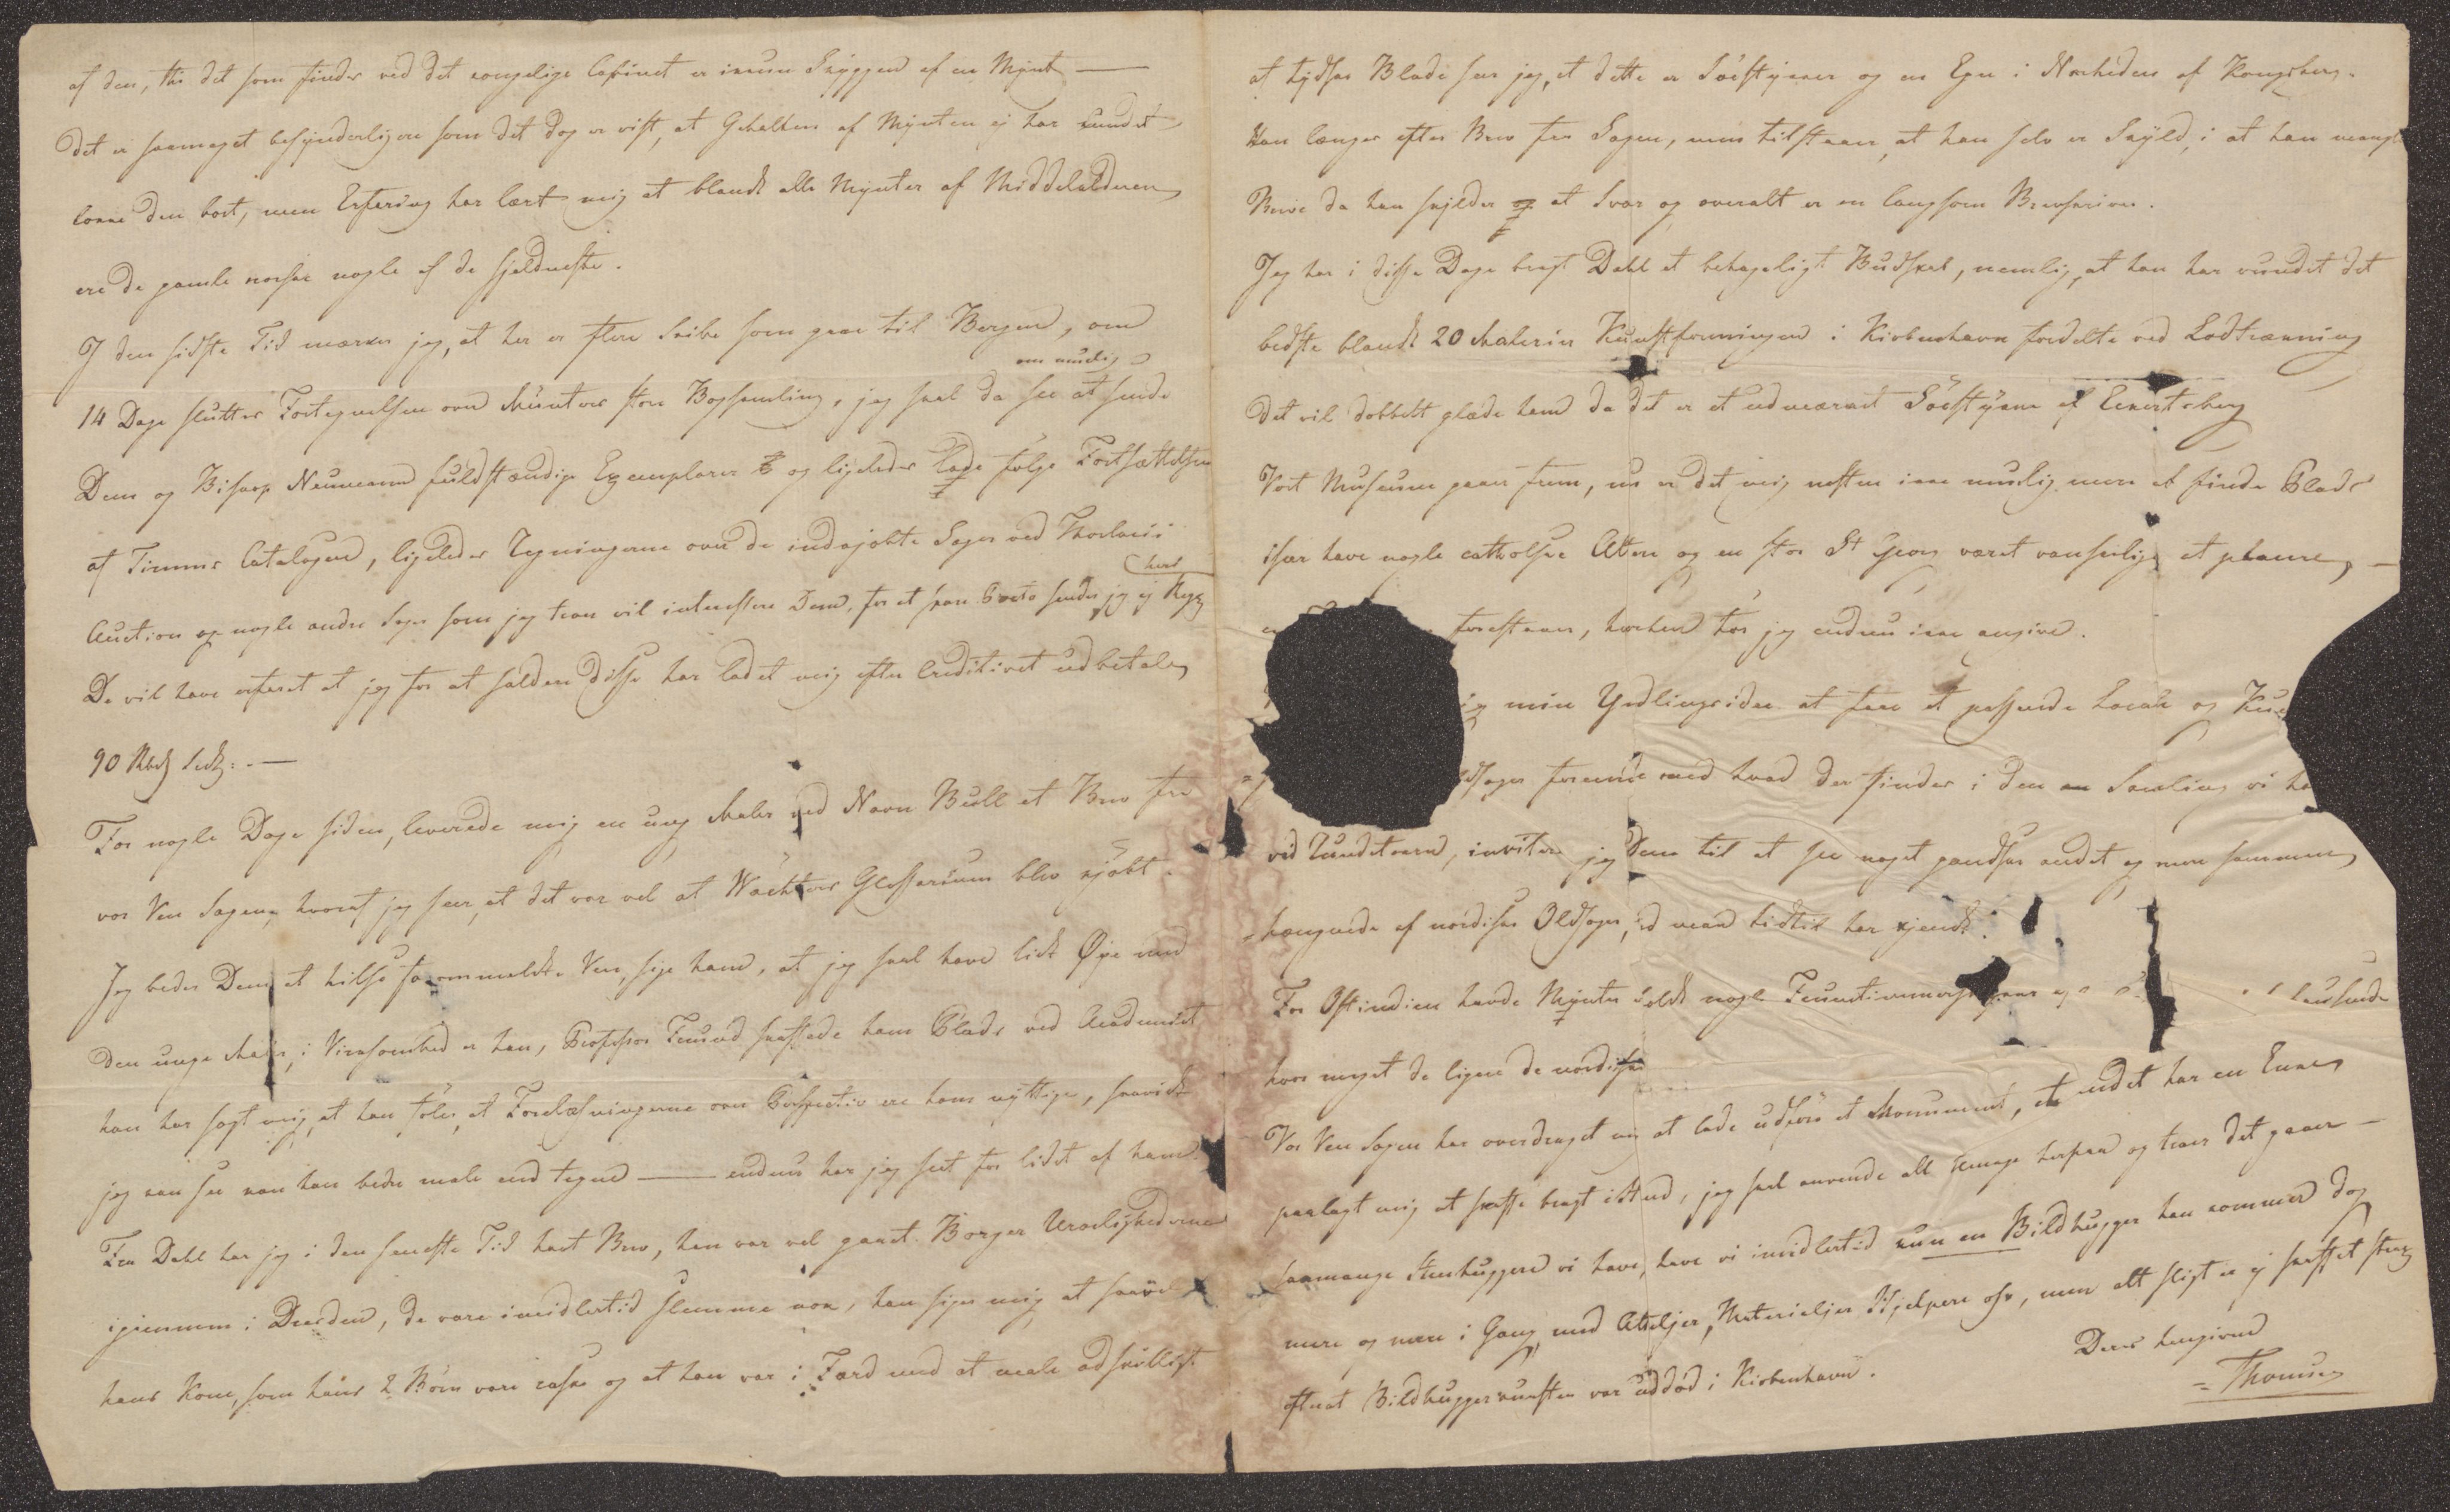 af den, thi det som findes ved det kongelige Cabinet er ikkun Skyggen af en Mynt —
Det er saameget besynderligere som det dog er vist, at Gehalten af Mynten ej har kundet
lokke den bort, men Erfaring har lært mig at blandt alle Mynter af Middelalderen
ere de gamle norske nogle af de sjeldneste.
I den sidste Tid mærker jeg, at her er flere Skibe som gaae til Bergen, om
14 Dage slutter Fortegnelsen over Münters store Bogsamling, jeg skal da see at om muelig sende
Dem og Biskop Neumann fuldstændige Exemplarer og ligeledes lade følge Fortsættelsen
af Timms Catalogue, ligeledes Tegningerne over de indkjøbte Sager ved Thorlacii
Auction og nogle andre Sager som jeg troer vil interessere Dem, for at spare Porto sender jeg ej
De vil have erfaret at jeg for at holde disse har ladet mig efter Creditivet udbetale
90 Rbd Sedl: —
For nogle Dage siden, leverede mig en ung Maler ved Navn Bull et Brev fra
vor Ven Sagen, hvoraf jeg seer, at det var vel at Wachters Glossarium blev kjøbt.
Jeg beder Dem at hilse forommeldte Ven, sige ham, at jeg skal have lidt Øye med
den unge Maler, i Virksomhed er han, Professor Freund skaffede ham Plads ved Academiet
han har sagt mig, at han føler, at Forelæsningerne over Perspectiv ere ham nyttige, saavidt
jeg kan see kan han bedre male end tegne — endnu har jeg seet for lidet af ham.
Fra Dahl har jeg i den seneste Tid havt Brev, han var vel gaaet Borger Uroelighederne
igiennem i Dresden, de vare imidlertid slemme nok, han siger mig at saavel
hans Kone, som hans 2 Børn vare raske og at han var i Færd med at male adskilligt
at tydske Blade seer jeg, at dette er Søestykker og en Egn i Nærheden af Kongsberg.
Han længes efter Brev fra Sagen, men tilstaaer, at han selv er Skyld, i at han mangler
Breve da han skylder at Svar og overalt er en langsom Brevskriver.
Jeg har i disse Dage bragt Dahl et behageligt Budskab, nemlig, at han har vundet det
bedste blandt 20 Malerier Kunstforeningen i Kiøbenhavn fordelte ved Lodtrækning
Det vil dobbelt glæde ham da det er et udmærket Søestykke af Eckersberg
Vort Museum gaaer frem, nu er det mig næsten ikke muelig mere at finde Plads
især have nogle catholske Altere og en stor St Georg været vanskelige at placere, —
forestaaer, hvorhen tør jeg endnu ikke angive.
min Yndlingsidee at faae et passende Locale og
forenet med hvad der findes i den Samling vi
ved Rundetaarn, invitere jeg Dem til at see noget gandske andet og mere sammen¬
hængende af nordiske Oldsager, end man hidtil har kjendt.
For Ostindien havde Mynter soldt nogle
hvor meget de ligne de nordiske
Vor Ven Sagen har overdraget mig at lade udføre et Monument, et andet har en Enke
paalagt mig at skaffe bragt istand, jeg skal anvende all Umage herpaa og troer det gaaer —
saamange Steenhuggere vi have, have vi imidlertid kun en Bildhugger han kommer dog
mere og mere i Gang med Attelier, Materialier Hjelpere osv, men alt sligt er ej skaffet strax
efterat Bildhuggerkunsten var uddød i Kiøbenhavn.
Deres hengivne
Thomsen